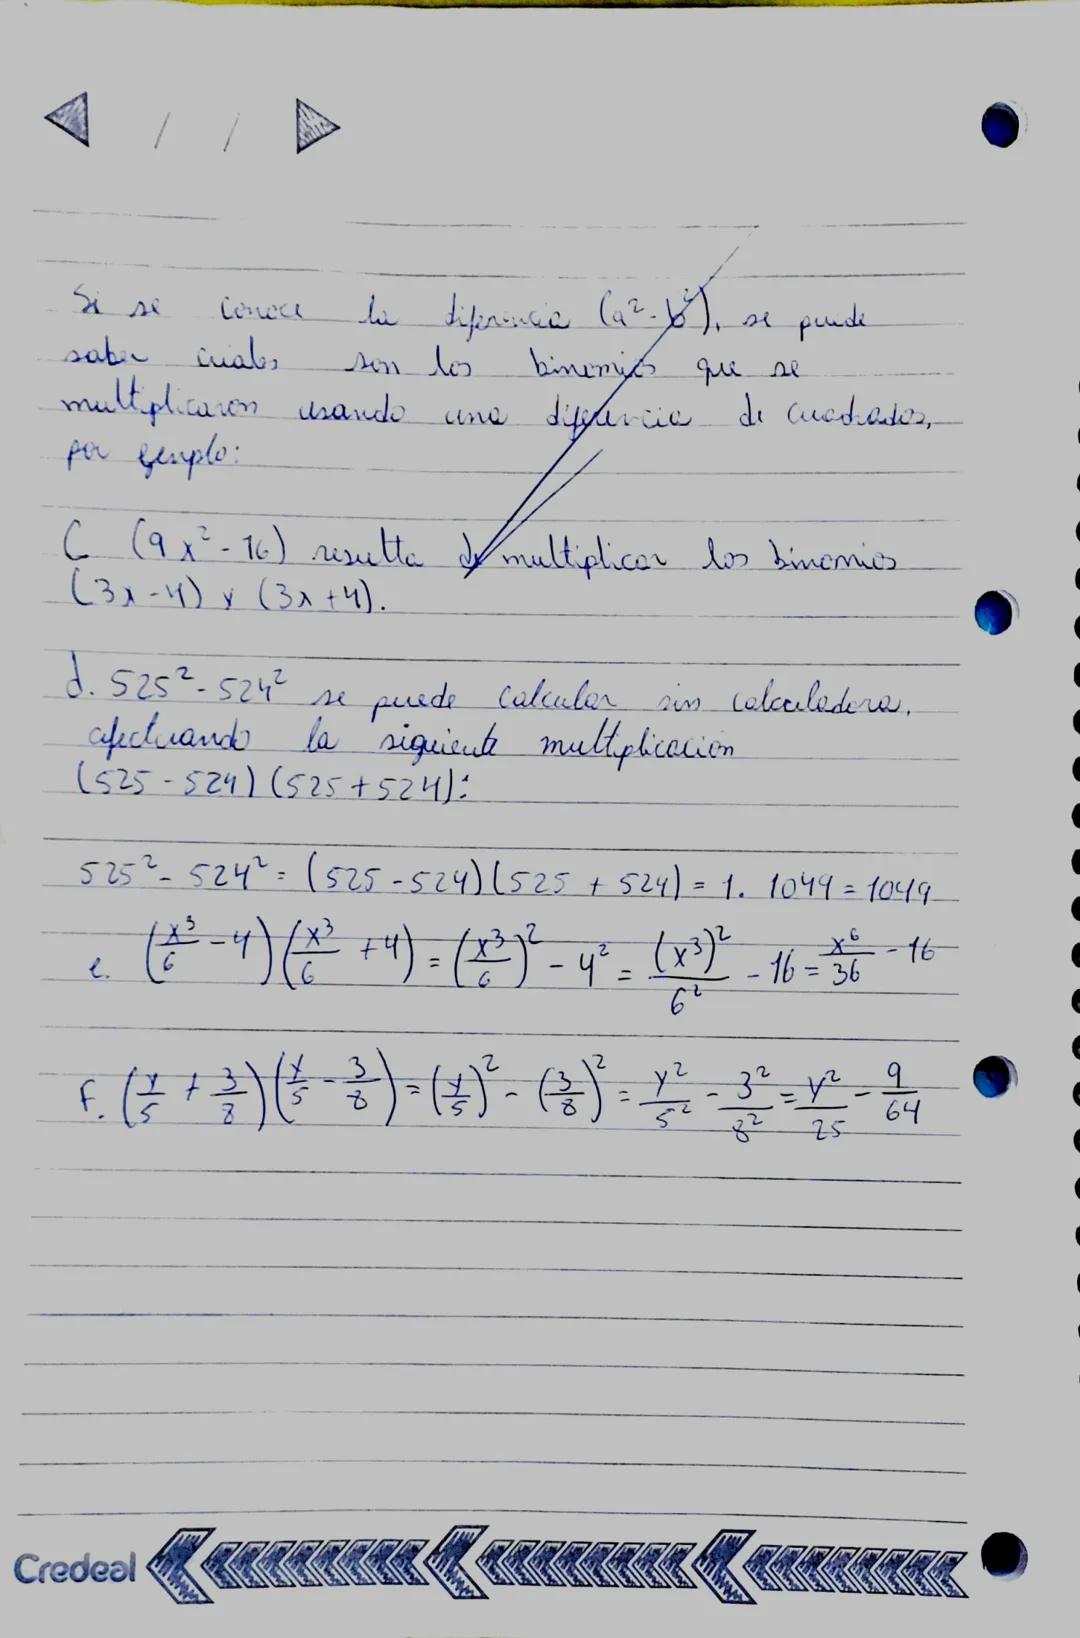 / /
Si se conoce la diferencia (a²-b²), se puede
saber cuales son los binomios que se
multiplicaron usando una diferencia de cuadrados,
por ejemplo:
C (9x²-16) resulta de multiplicar los binomios
(3x-4) y (3x+4).
d. 525²-524² se puede calcular sin calculadora,
efectuando la siguiente multiplicación
(525-524)(525+524):
525²-524² = (525-524)(525+524) = 1. 1049 = 1049
e. (x³/6 - 4)(x³/6 + 4) = (x³/6)² - 4² = (x³)²/6² - 16 = x⁶/36 - 16
f. (y/5 + 3/8)(y/5 - 3/8) = (y/5)² - (3/8)² = y²/5² - 3²/8² = y²/25 - 9/64
Credeal